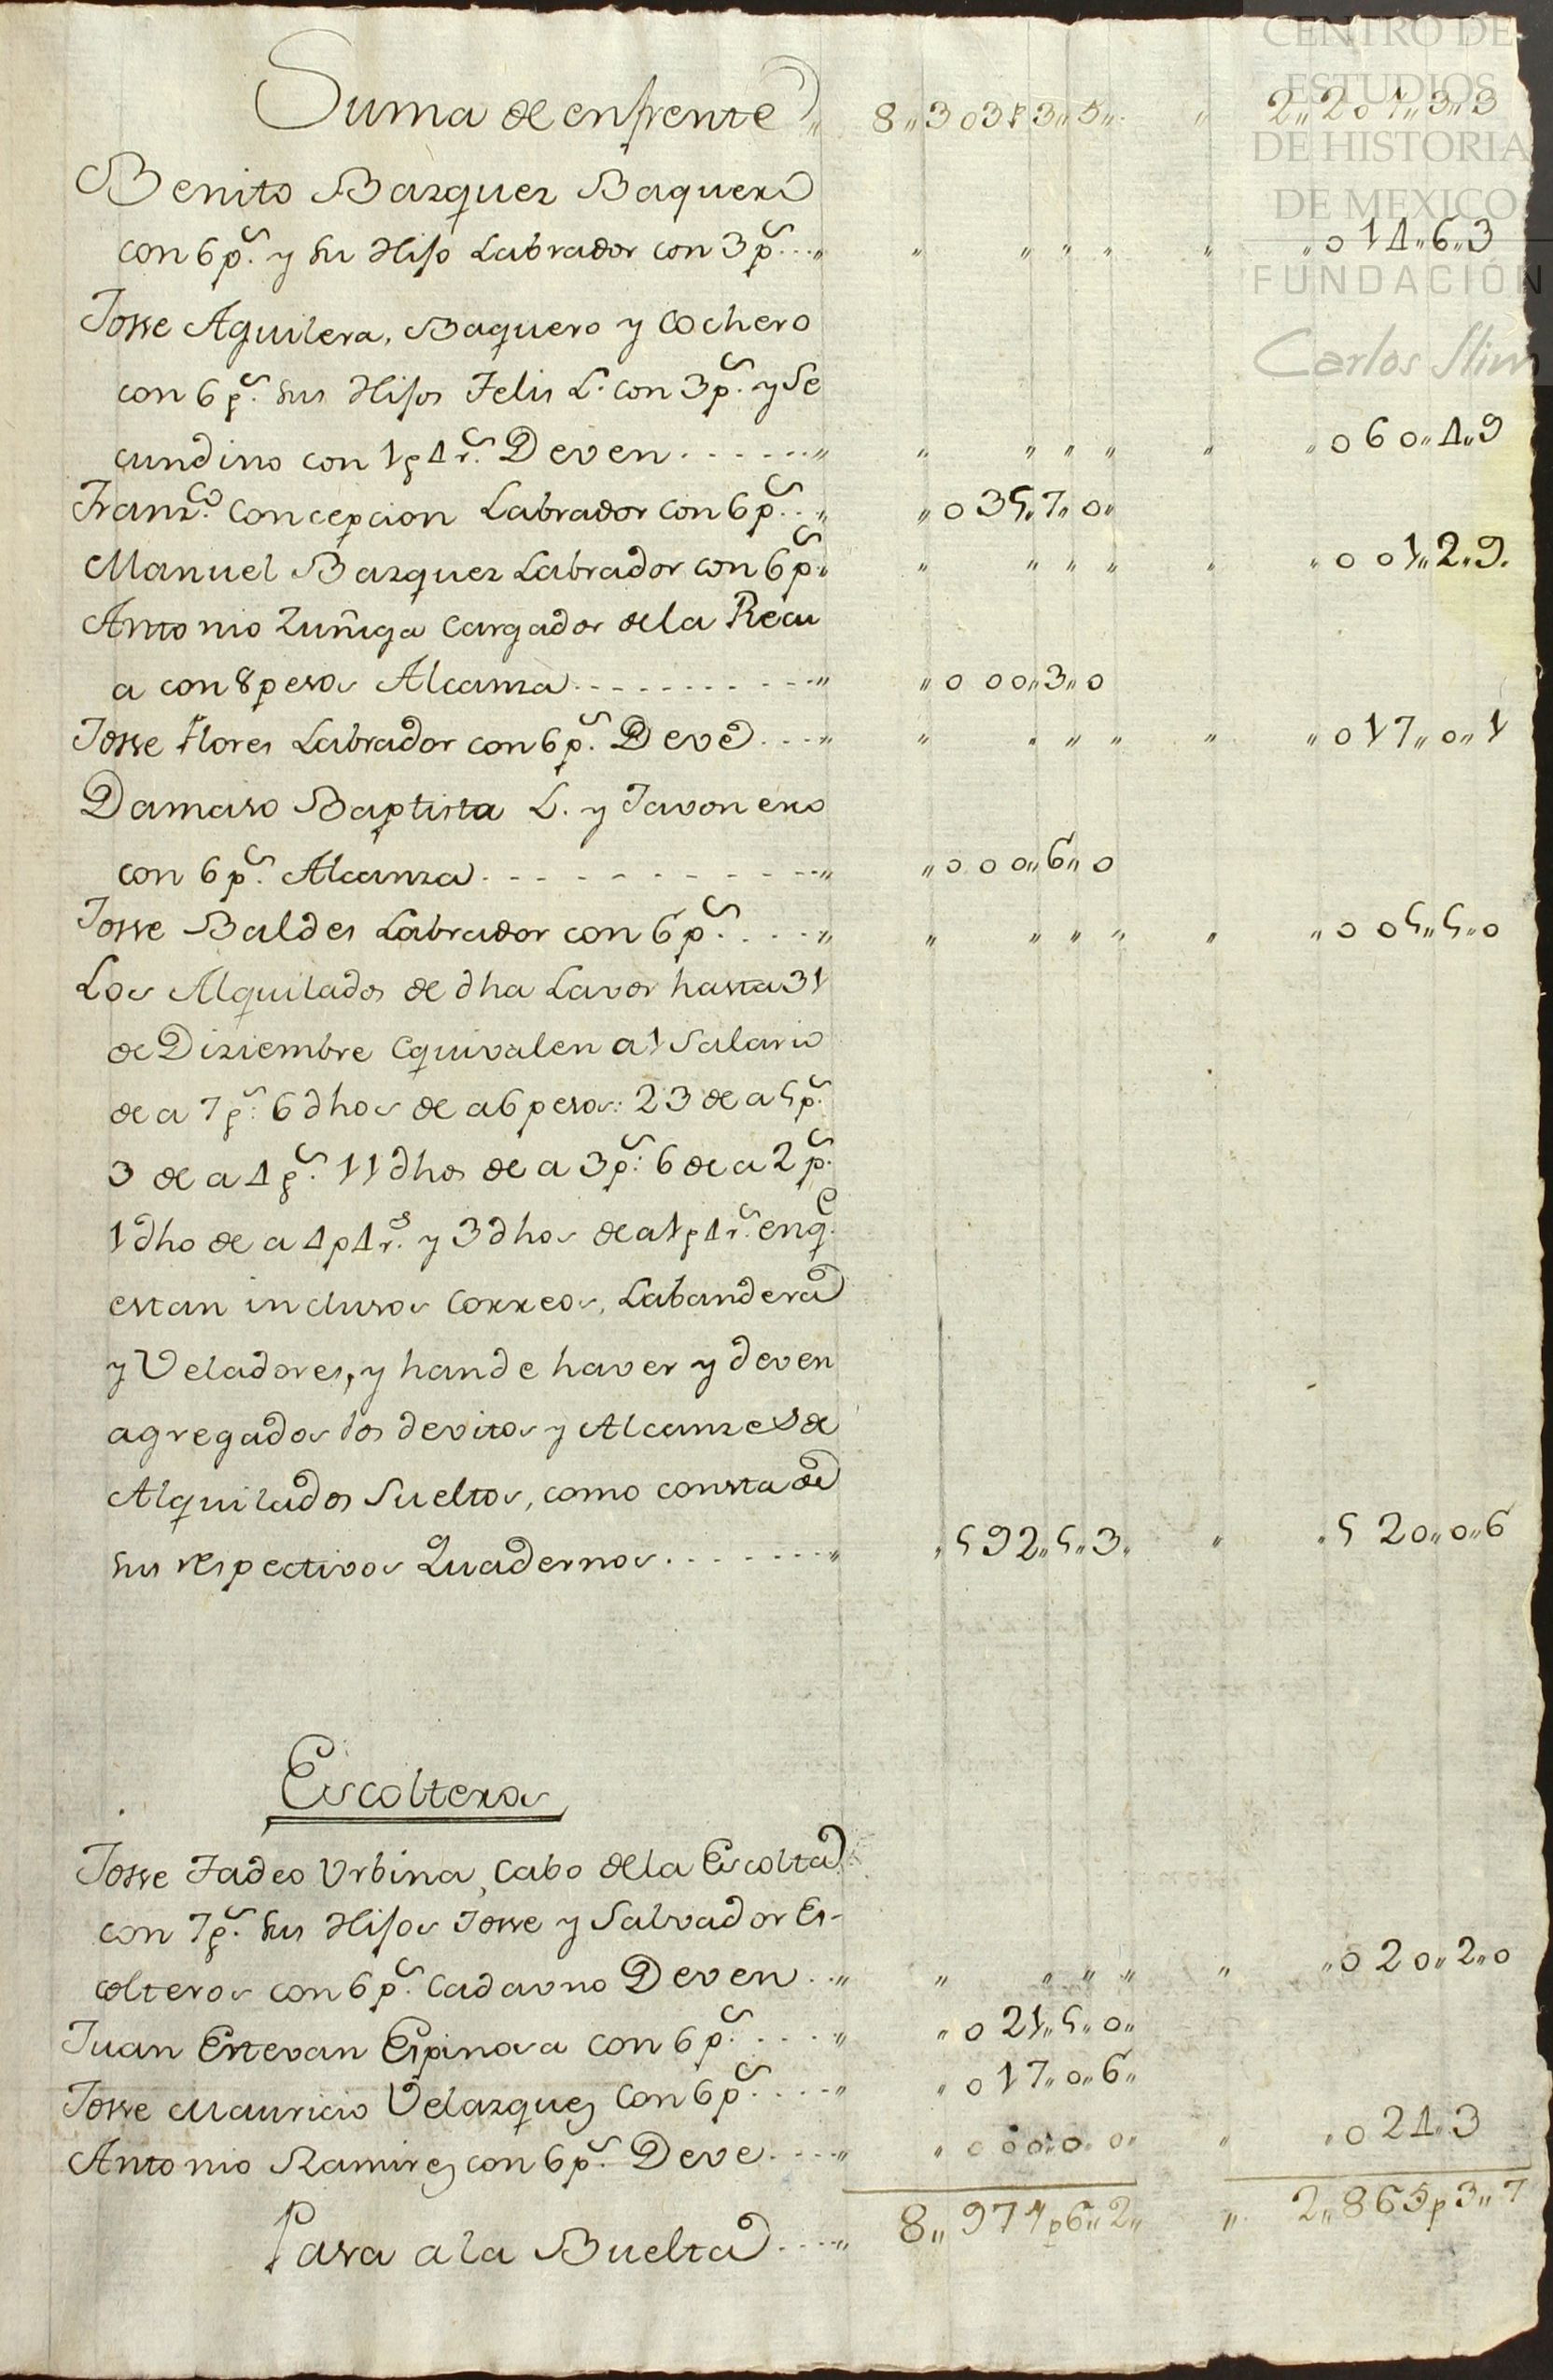 Suma de enfrente „ 8„ 303 p 3„ 5„ „ 2„ 201„ 3„ 3
Benito Bazquez Baquero
con 6 p.s y su Hijo Labrador con 3 p.s ...„ „ „ „ „ „ „ 014„ 6„ 3
Josse Aguilera, Baquero y Cochero
con 6 p.s sus Hijos Felis L. con 3 p.s y Se
cundino con 1 p 4 r.s Deven ......„ „ „ „ „ „ „ 060„ 4„ 9
Franz.co Concepcion Labrador con 6 p.s ..„ „ 035„ 7„ 0„
Manuel Bazquez Labrador con 6 p.s „ „ „ „ „ „ „ 001„ 2„ 9.
Antonio Zuñiga Cargador de la Recu
a con 8 pesos Alcanza ..........„ „ 000„ 3„ 0
Josse Flores Labrador con 6 p.s Deve ....„ „ „ „ „ „ „ 017„ 0„ 1
Damaso Baptista L. y Javonero
con 6 p.s Alcanza ..........„ „ 000„ 6„ 0
Josse Baldes Labrador con 6 p.s ....„ „ „ „ „ „ „ 005„ 5„ 0
Los Alquilados de dha Lavor hasta 31
de Diziembre equivalen a 1 Salario
de a 7 p.s: 6 dhos de a 6 pesos: 23 de a 5 p.s
3 de a 4 p.s: 11 dhos de a 3 p.s: 6 de a 2 p.s
1 dho de a 4 p 4 r.s y 3 dhos de a 1 p 4 r.s en q.e
estan inclusos Correos, Labandera
y Veladores, y han de haver y deven
agregados los devitos y Alcanzes de
Alquilados Sueltos, como consta de
sus respectivos Quadernos .......„ „ 592„ 5„ 3„ „ „ 520„ 0„ 6
Escolteros
Josse Tadeo Urbina, Cabo de la Escolta
con 7 p.s sus Hijos Josse y Salvador Es-
colteros con 6 p.s Cada uno Deven ..„ „ „ „ „ „ „ 020„ 2„ 0
Juan Estevan Espinosa con 6 p.s ....„ „ 021„ 5„ 0„
Josse Mauricio Velazquez con 6 p.s ....„ „ 017„ 0„ 6„
Antonio Ramirez con 6 p.s Deve ....„ „ 000„ 0„ 0„ „ „ 024„ 3
Pasa a la Buelta ....„ 8„ 971 p 6„ 2„ „ 2„ 865 p 3„ 7
CENTRO DE
ESTUDIOS
DE HISTORIA
DE MEXICO
FUNDACIÓN
Carlos Slim